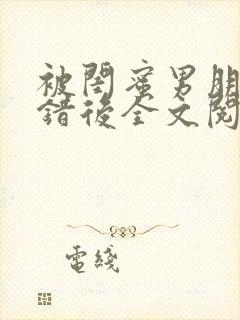 被閨蜜男朋
錯後全文閱
電綫